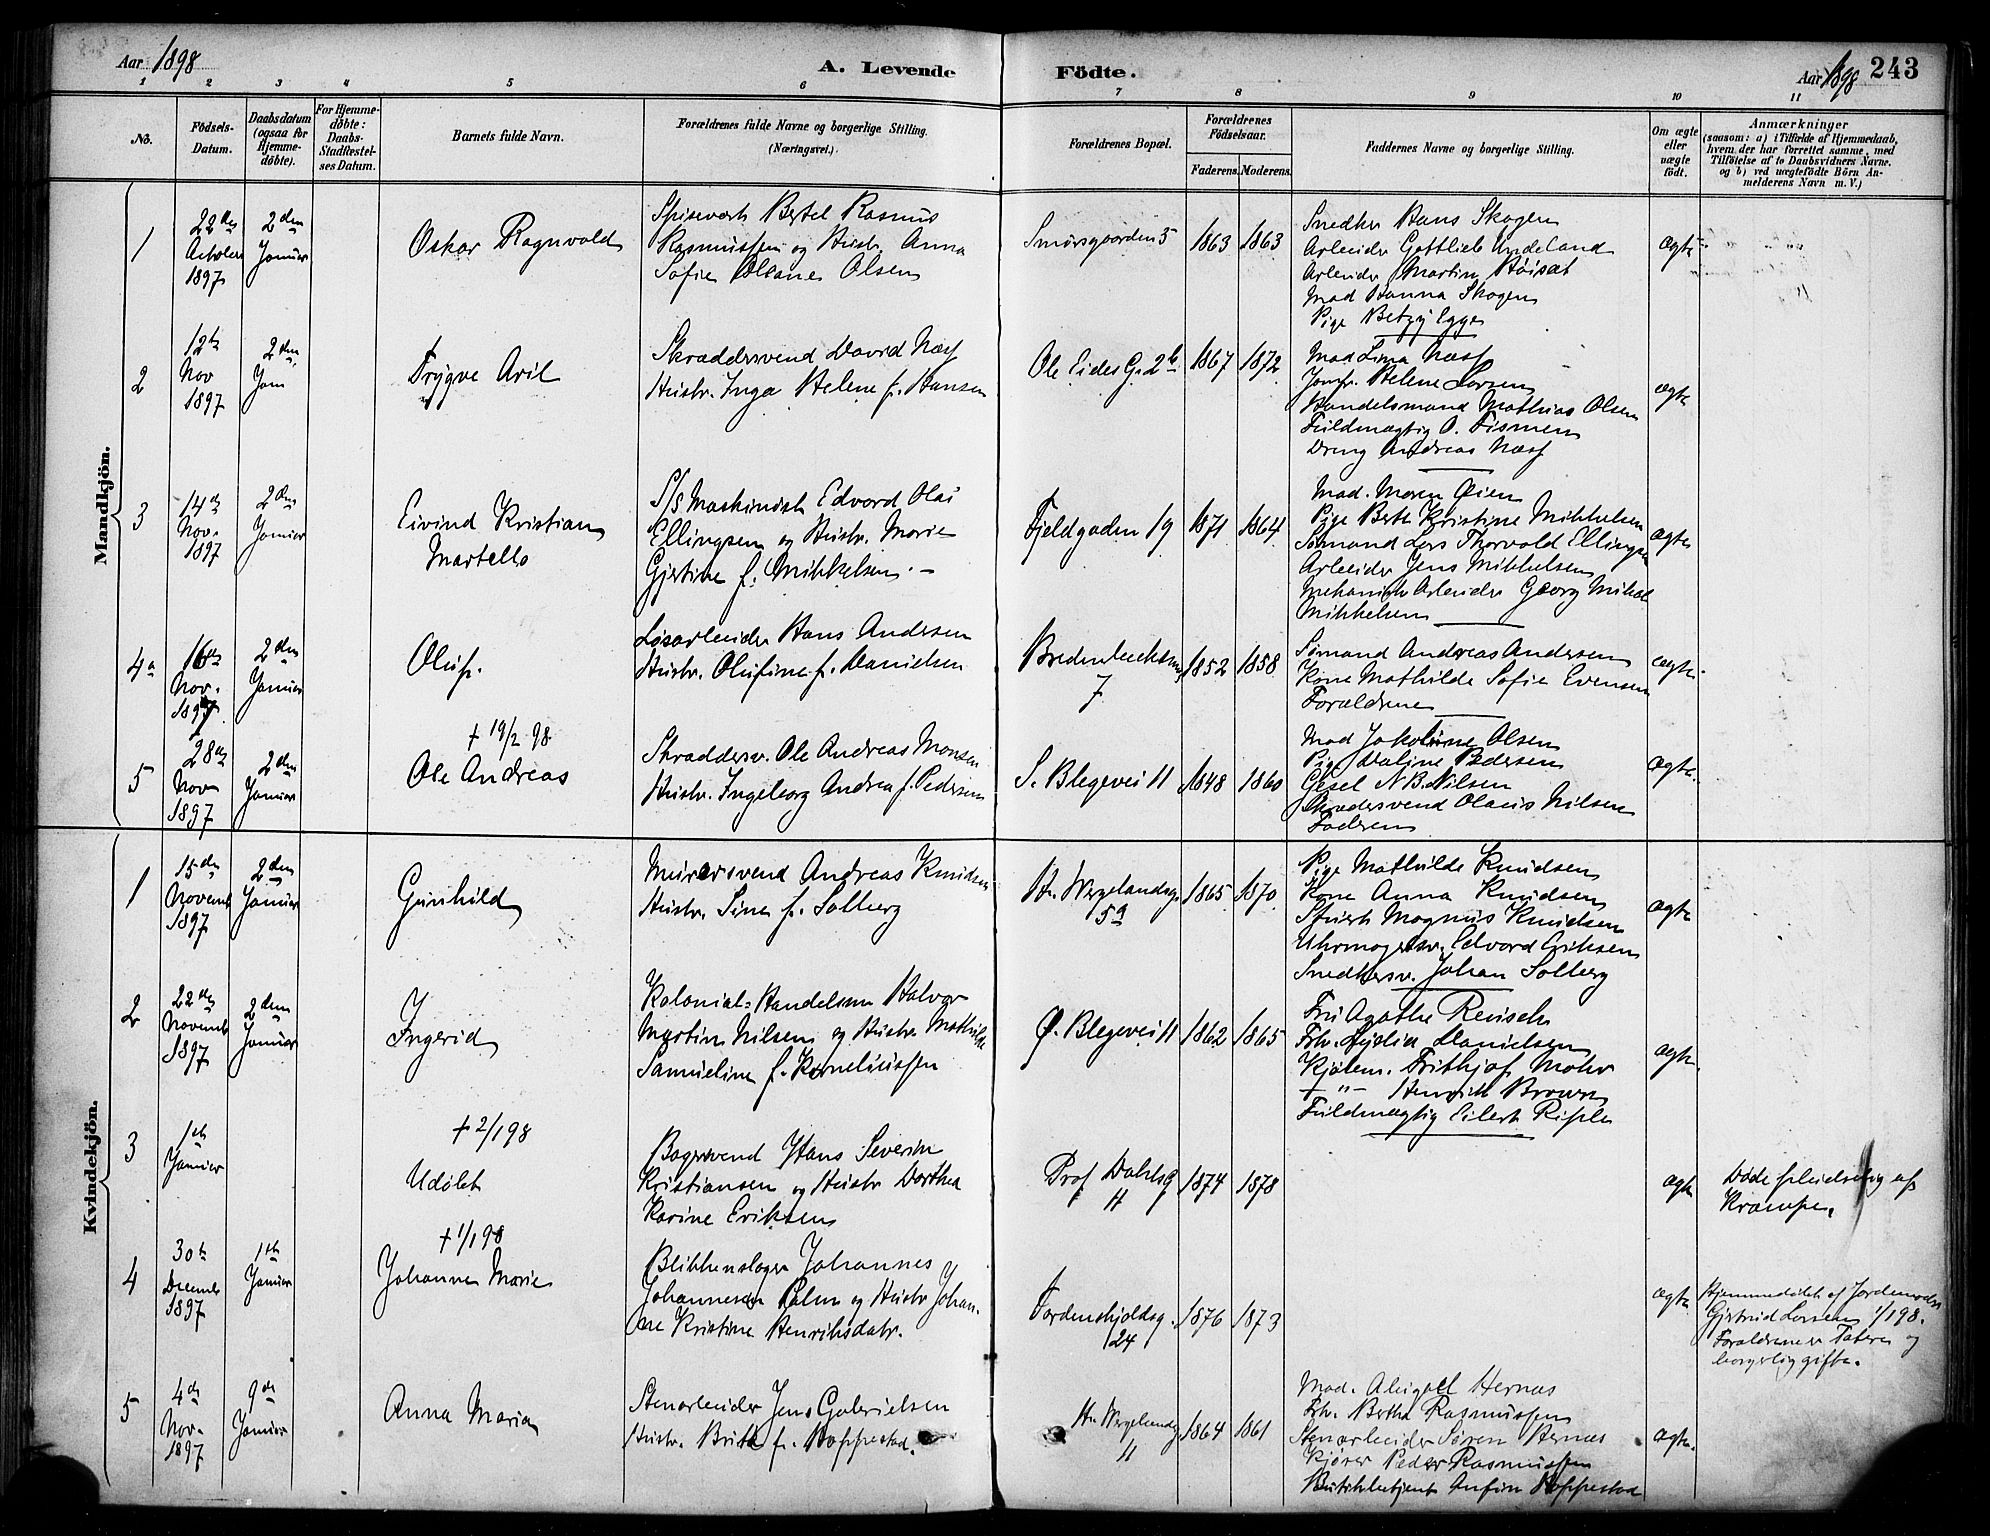 Aar 1898
A. Levende
Födte.
Aar 1898
243
1 2 3 4 5 6 7 8 9 10 11
No.
Födsels-Datum.
Daabsdatum (ogsaa for Hjemme-döbte).
For Hjemme-döbte: Daabs-Stadfæstel-ses Datum.
Barnets fulde Navn.
Forældrenes fulde Navne og borgerlige Stilling.
(Næringsvei.)
Forældrenes Bopæl.
Forældrenes Födselsaar.
Faderens. Moderens.
Faddernes Navne og borgerlige Stilling.
Om ægte eller uægte födt.
Anmærkninger
(saasom: a) i Tilfælde af Hjemmedaab,
hvem der har forrettet samme, med
Tilföielse af to Daabsvidners Navne.
og b) ved uægtefödte Börn An-
melderens Navn m. V.)
Mandkjön.
1
22den
1897
2den
Januar
Oskar Ragnvald
Spisevært Bertel Rasmus
Rasmussen og Hustr. Anna
Sofie Oleane Olsen
Smørsgaarden 5
1863
1863
Snedker Hans Skogen
Arbeider Gottlieb Undeland
Arbeider Martin Høisæt
Mad Hanna Skogen
Pige Betzy Egge
ægte
2
12te
Nov
1897
2den
Jan
Trygve Aril
Skræddersvend David Næss
Hustr. Inga Helene f. Hansen
Ole Eides G. 2b
1867
1872
Mad Lina Næss
Jomfr. Helene Larsen
Handelsmand Mathias Olsen
Fuldmægtig O. Tismen
Dreng Andreas Næss
ægte
3
14de
Nov.
1897
2den
Januar
Eivind Kristian
Martello
S/S Maskinist Edvard Olai
Ellingsen og Hustr. Marie
Gjertine f. Mikkelsen. -
Fjeldgaden 19
1871
1864
Mad. Maren Øien
Pige Berte Kristine Mikkelsen
Sømand Lars Thorvald Ellingsen
Arbeider Jens Mikkelsen
Mekanisk Arbeider Georg Mikal
Mikkelsen
ægte
4a
16de
Nov.
1897
2den
Januar
Oluf.
Løsarbeider Hans Andersen
Hustr. Olufine f. Danielsen
7
1852
1858
Sømand Andreas Andersen
Kone Mathilde Sofie Evensen
Forældrene
ægte
5
28de
Nov
1897
2den
Januar
+ 19/2 98
Ole Andreas
Skræddersv. Ole Andreas Monsen
Hustr. Ingeborg Andrea f. Pedersen
S. Blegevei 11
1848
1860
Mad Jakobine Olsen
Pige Valine Pedersen
Gesel N B. Nilsen
Skrædersvend Olaus Nilsen
Faderen
ægte.
Kvindekjön.
1
15de
Novemb
1897
2den
Januar
Gunhild
Murersvend Andreas Knudsen
Hustr. Sine f. Solberg
Hr. Wergelandsg.
5a
1865
1870
Pige Mathilde Knudsen
Kone Anna Knudsen
Stuert Magnus Knudsen
Uhrmagersv. Edvard Eriksen
Snedkersv. Johan Solberg
ægte
2
22de
Novemb
1897
2den
Januar
Ingerid
Kolonial-Handelsm Halvor
Martin Nilsen og Hustr. Mathilde
Samueline f. Korneliussen
Ø. Blegevei 11
1862
1865
Fru Agathe Reusch
Frk. Danielsen
Kjøbm. Frithjof Mohr
+ "- Henrich Brown
Fuldmægtig Eilert
ægte.
3
1ste
Januar
+ 2/1 98
Udøbt
Bagersvend Hans Severin
Kristiansen og Hustr Dorthea
Karine Eriksen
Prof Dahlsg
11
1874
1878
ægte
Døde pludselig af
Krampe.
4
30te
Decemb
1897
1ste
Januar
+ 1/1 98
Johanne Marie
Blikkenslager Johannes
Johannesen Palm og Hustr Johan-
ne Kristine Henriksdatr.
Tordenskjoldsg.
24
1876
1873
ægte
Hjemmedøbt af Jordemoder
Gjertrud Larsen 1/1 98.
Forældrene er Tatere og
borgerlig gifte.
5
4de
Nov.
1897
9de
Januar
Anna Maria
Stenarbeider Jens Gabrielsen
Hustr. Brita f. Hoppestad.
Hr. Wergelandsg
11
1864
1861
Mad. Abigael Hernæs
Frk. Bertha Rasmussen
Stenarbeider Søren Hernæs
Kjører Peder Rasmussen
Butikbetjent Anfin Hoppestad
ægte.